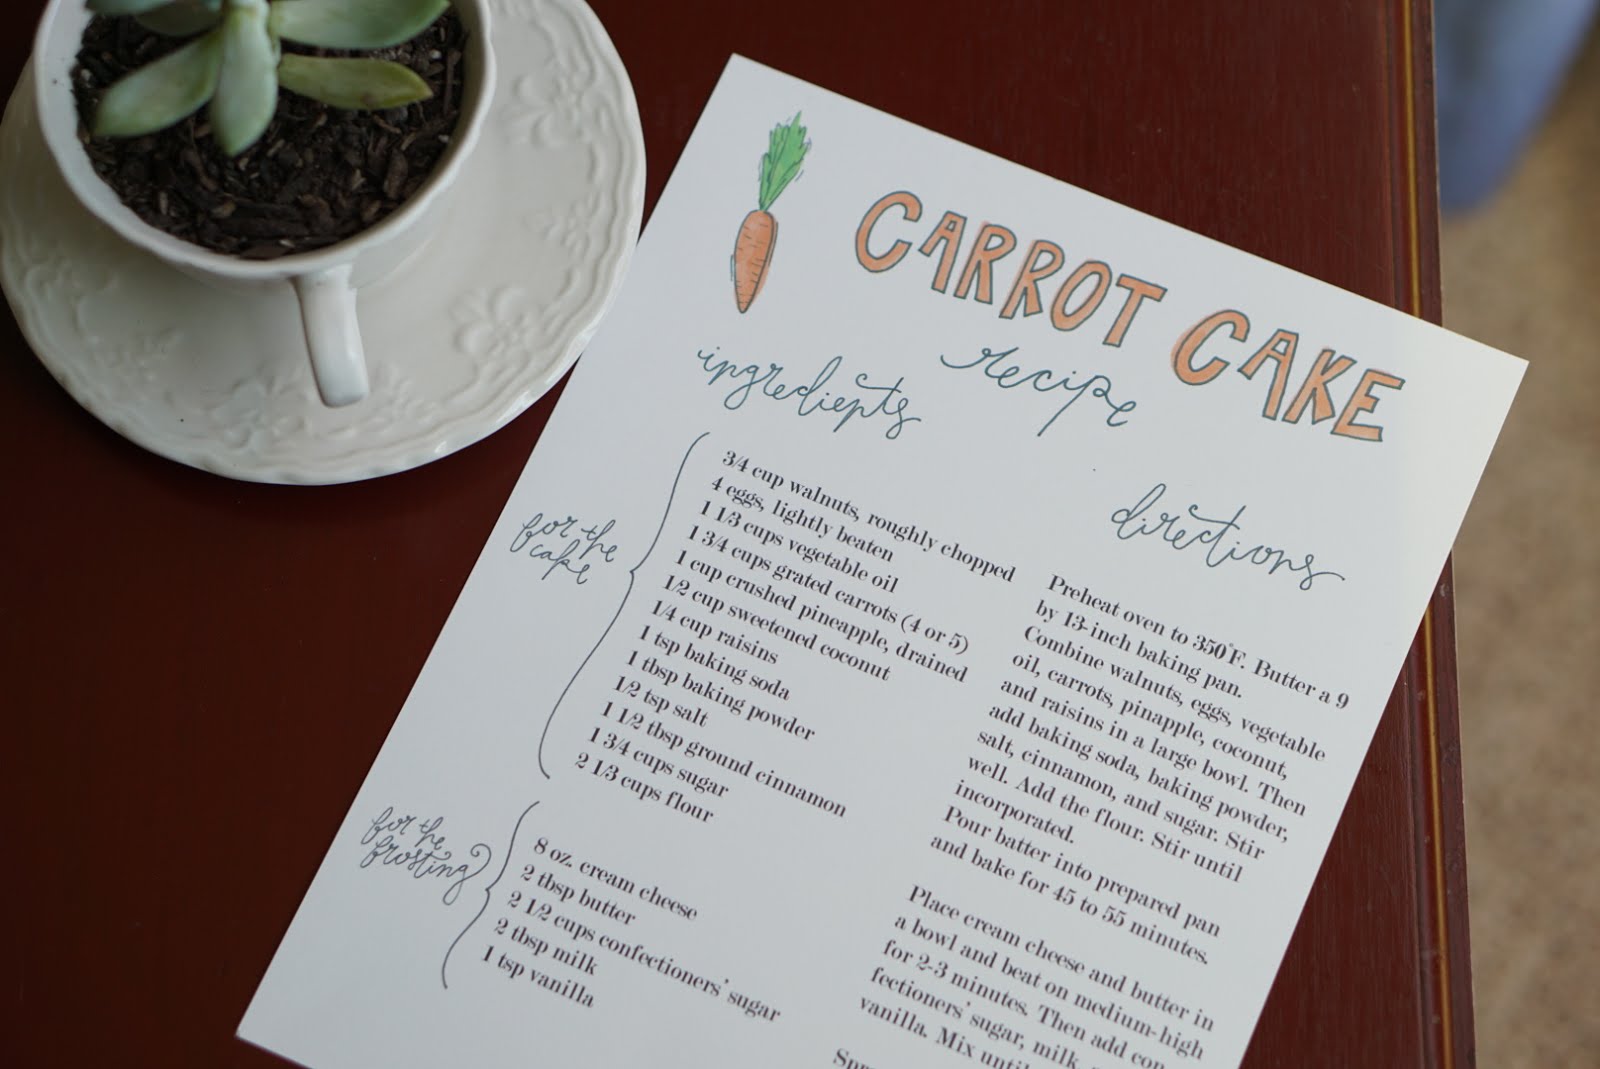 CARROT CAKE
recipe
ingredients
for the
cake
3/4 cup walnuts, roughly chopped
4 eggs, lightly beaten
1 1/3 cups vegetable oil
1 3/4 cups grated carrots (4 or 5)
1 cup crushed pineapple, drained
1/2 cup sweetened coconut
1/4 cup raisins
1 tsp baking soda
1 tbsp baking powder
1/2 tsp salt
1 1/2 tbsp ground cinnamon
1 3/4 cups sugar
2 1/3 cups flour
for the
frosting
8 oz. cream cheese
2 tbsp butter
2 1/2 cups confectioners' sugar
2 tbsp milk
1 tsp vanilla
directions
Preheat oven to 350°F. Butter a 9
by 13-inch baking pan.
Combine walnuts, eggs, vegetable
oil, carrots, pinapple, coconut,
and raisins in a large bowl. Then
add baking soda, baking powder,
salt, cinnamon, and sugar. Stir
well. Add the flour. Stir until
incorporated.
Pour batter into prepared pan
and bake for 45 to 55 minutes.
Place cream cheese and butter in
a bowl and beat on medium-high
for 2-3 minutes. Then add con-
fectioners' sugar, milk,
vanilla. Mix until